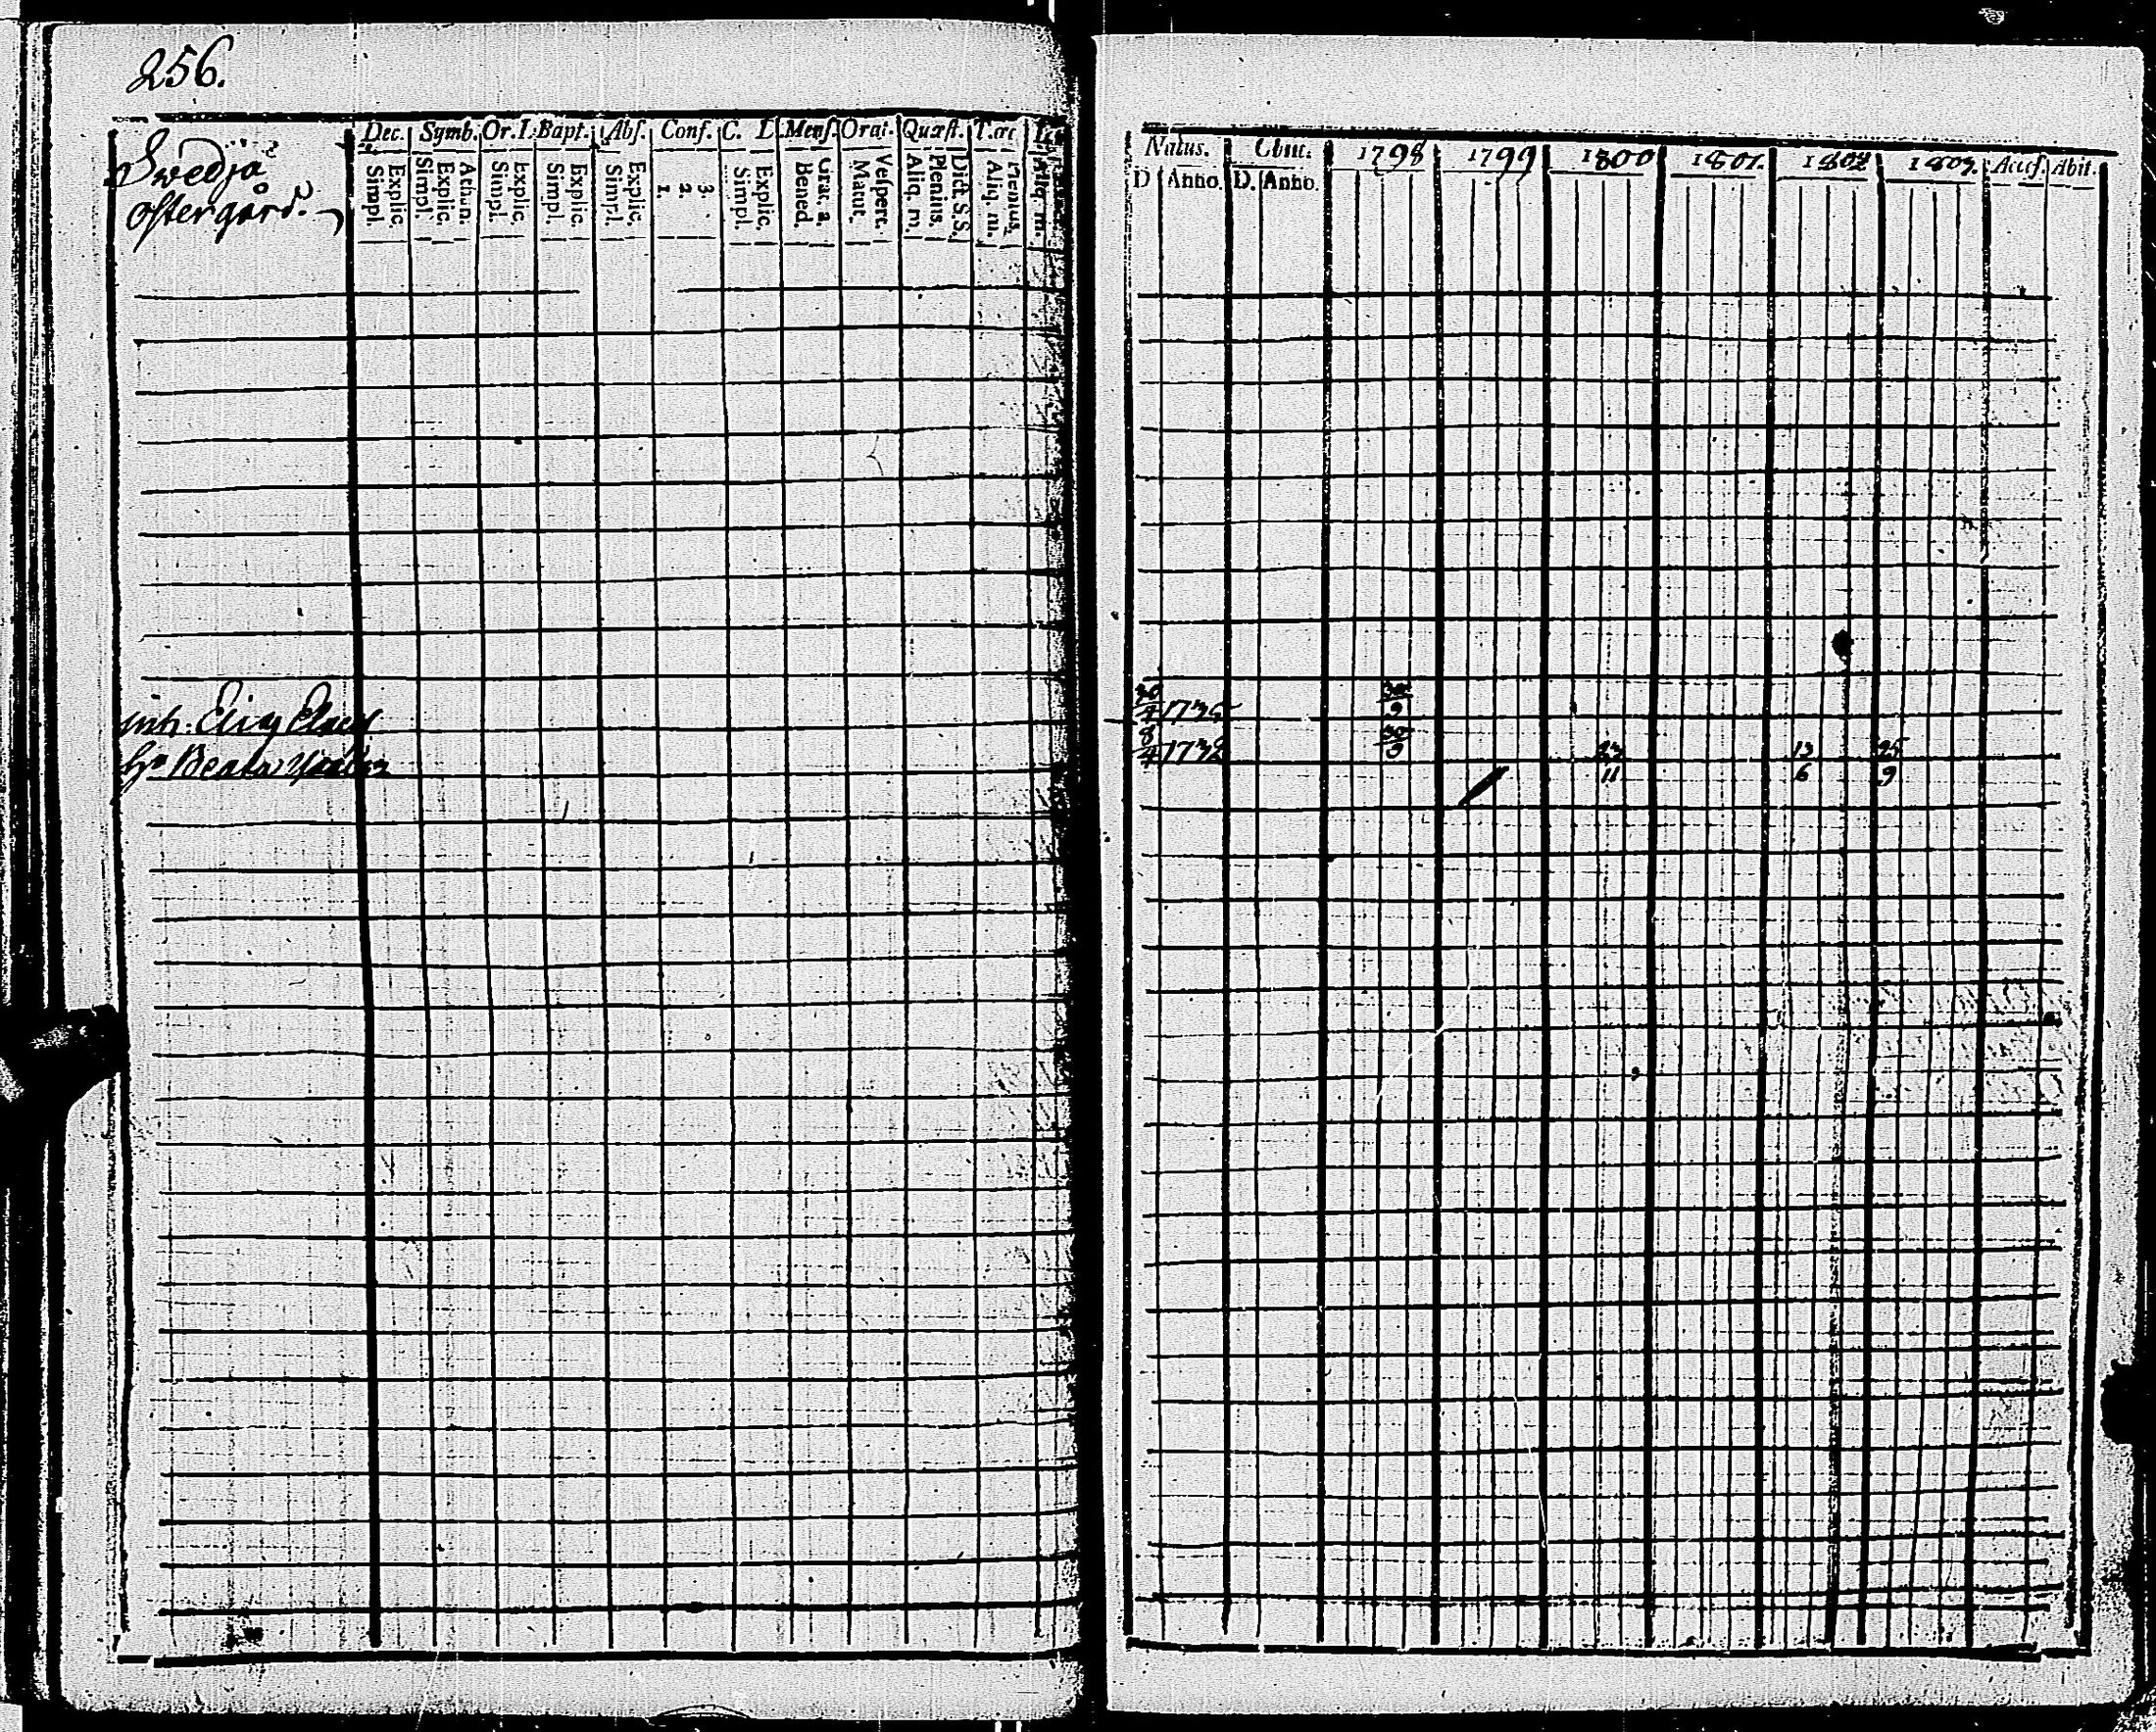 256.
Swedja
Östergård.
Dec. Symb. Or. D. Bapt. Abs. Conf. C. D. Mens. Orat. Quæst.
Explic. Simpl.
Athan. Explic. Simpl.
Explic. Simpl.
Explic. Simpl.
Explic. Simpl.
3. 2. 1.
Explic. Simpl.
Grac. a. Bened.
Vespert. Matut.
Dict. S.S. Plenius. Aliq. m.
Plenius. Aliq. m.
Aliq. m.
Natus. Obiit. 1798 1799 1800 1801. 1802 1803. Access. Abit.
D. Anno. D. Anno.
inh: Eric 30/4 1735 30/9
Hu Beata 8/4 1732 30/9 23/11 13/6 25/9